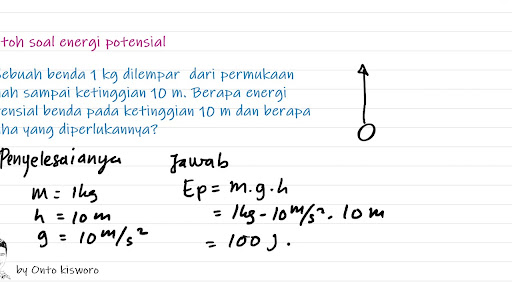 toh soal energi potensial
ebuah benda 1 kg dilempar dari permukaan
ah sampai ketinggian 10 m. Berapa energi
ensial benda pada ketinggian 10 m dan berapa
ha yang diperlukannya?
Penyelesaianya
Jawab
m = 1kg
Ep = m.g.h
h = 10 m
= 1kg - 10 m/s². 10 m
g = 10 m/s²
= 100 J.
by Onto kisworo